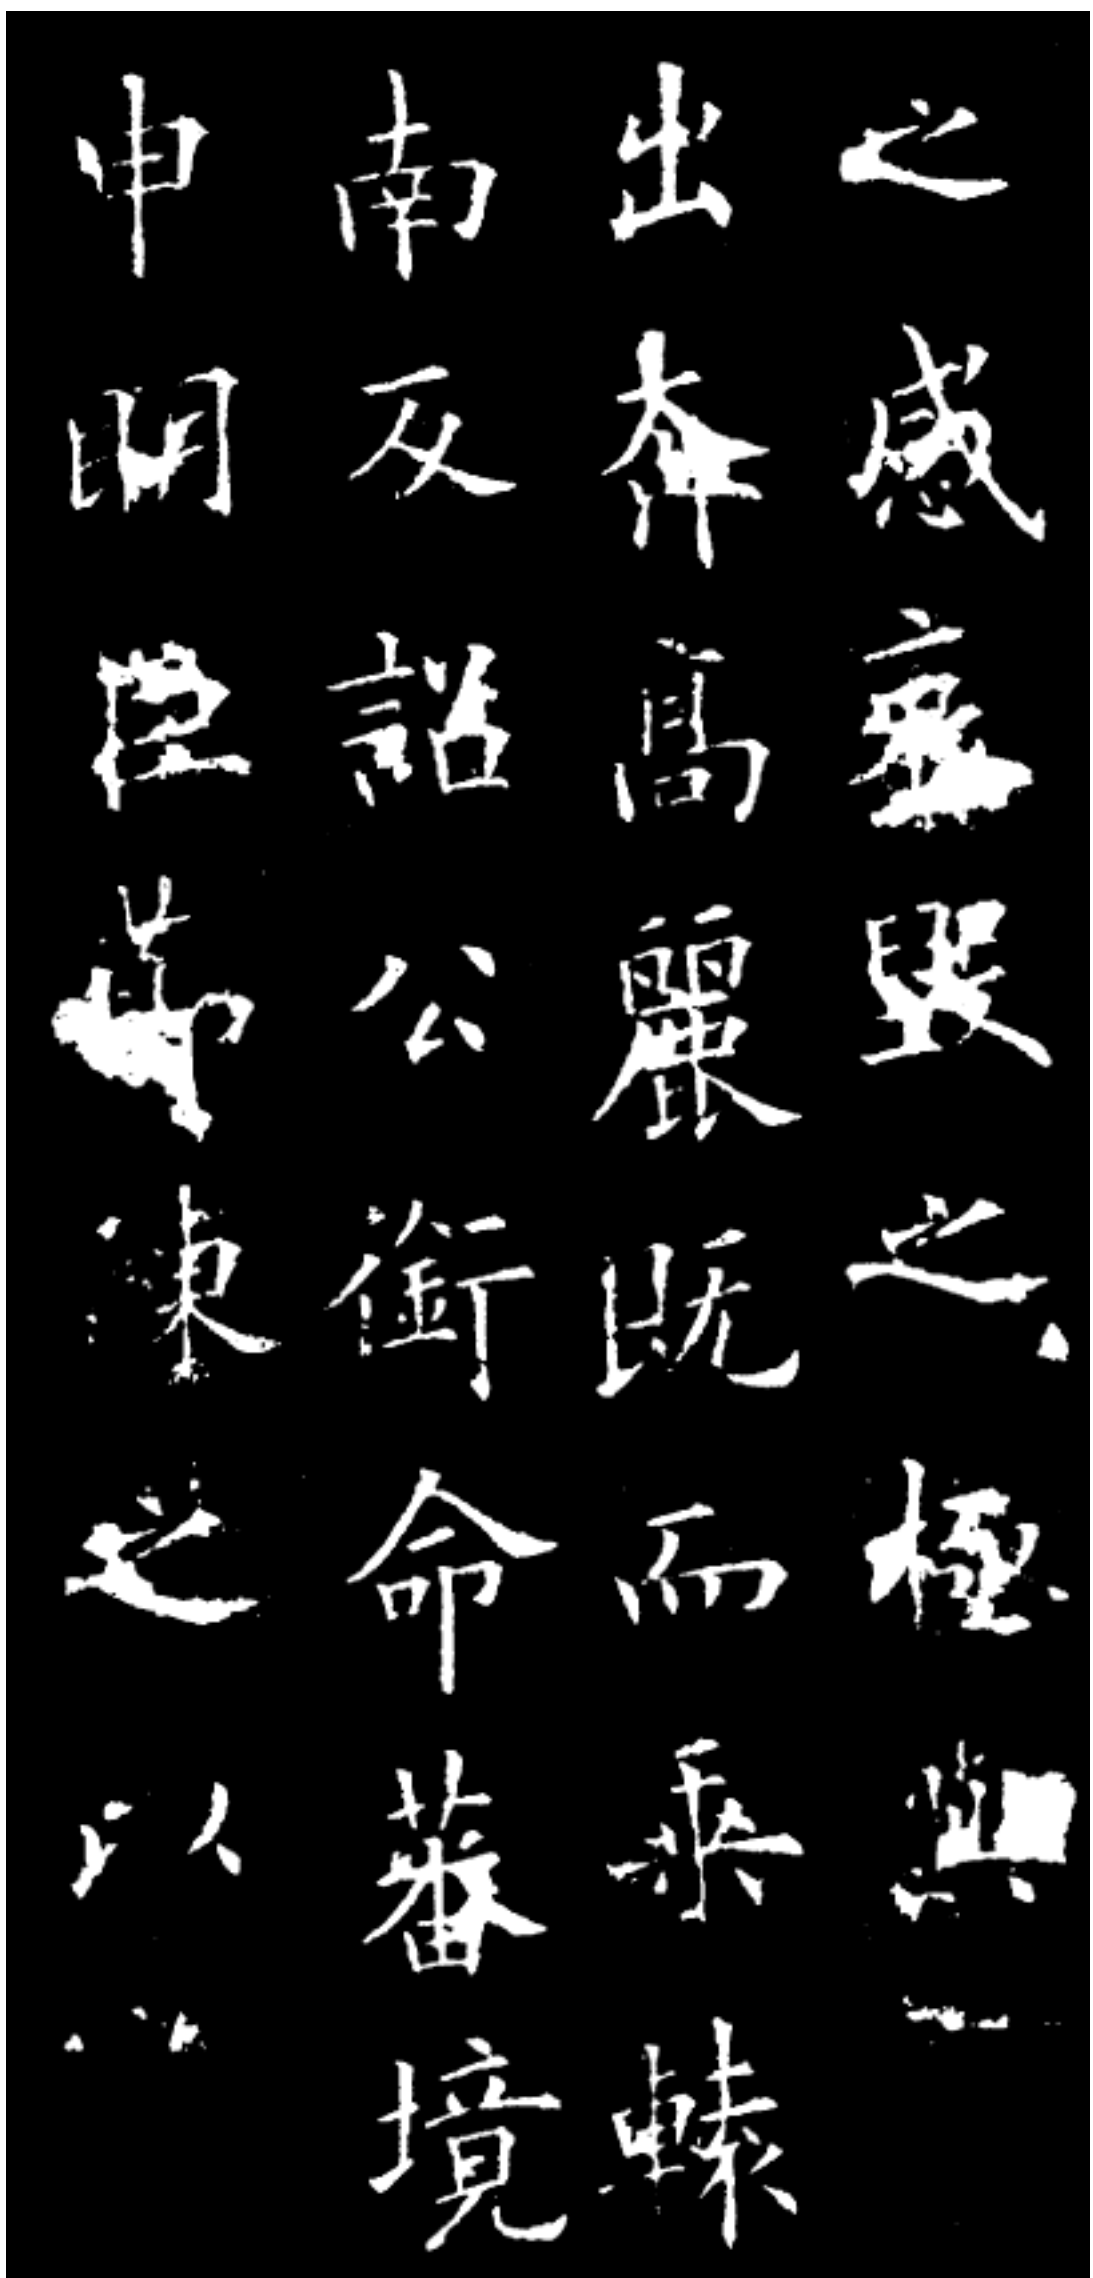 之感毀之極與
出奔高麗既而乘轅
南反詔公銜命蕃境
申明臣節陳之以